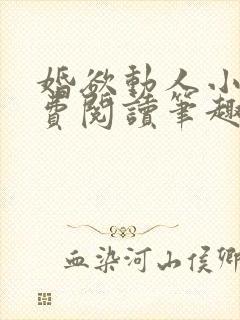 婚欲動人小
費閱讀筆趣
血染河山侯卿